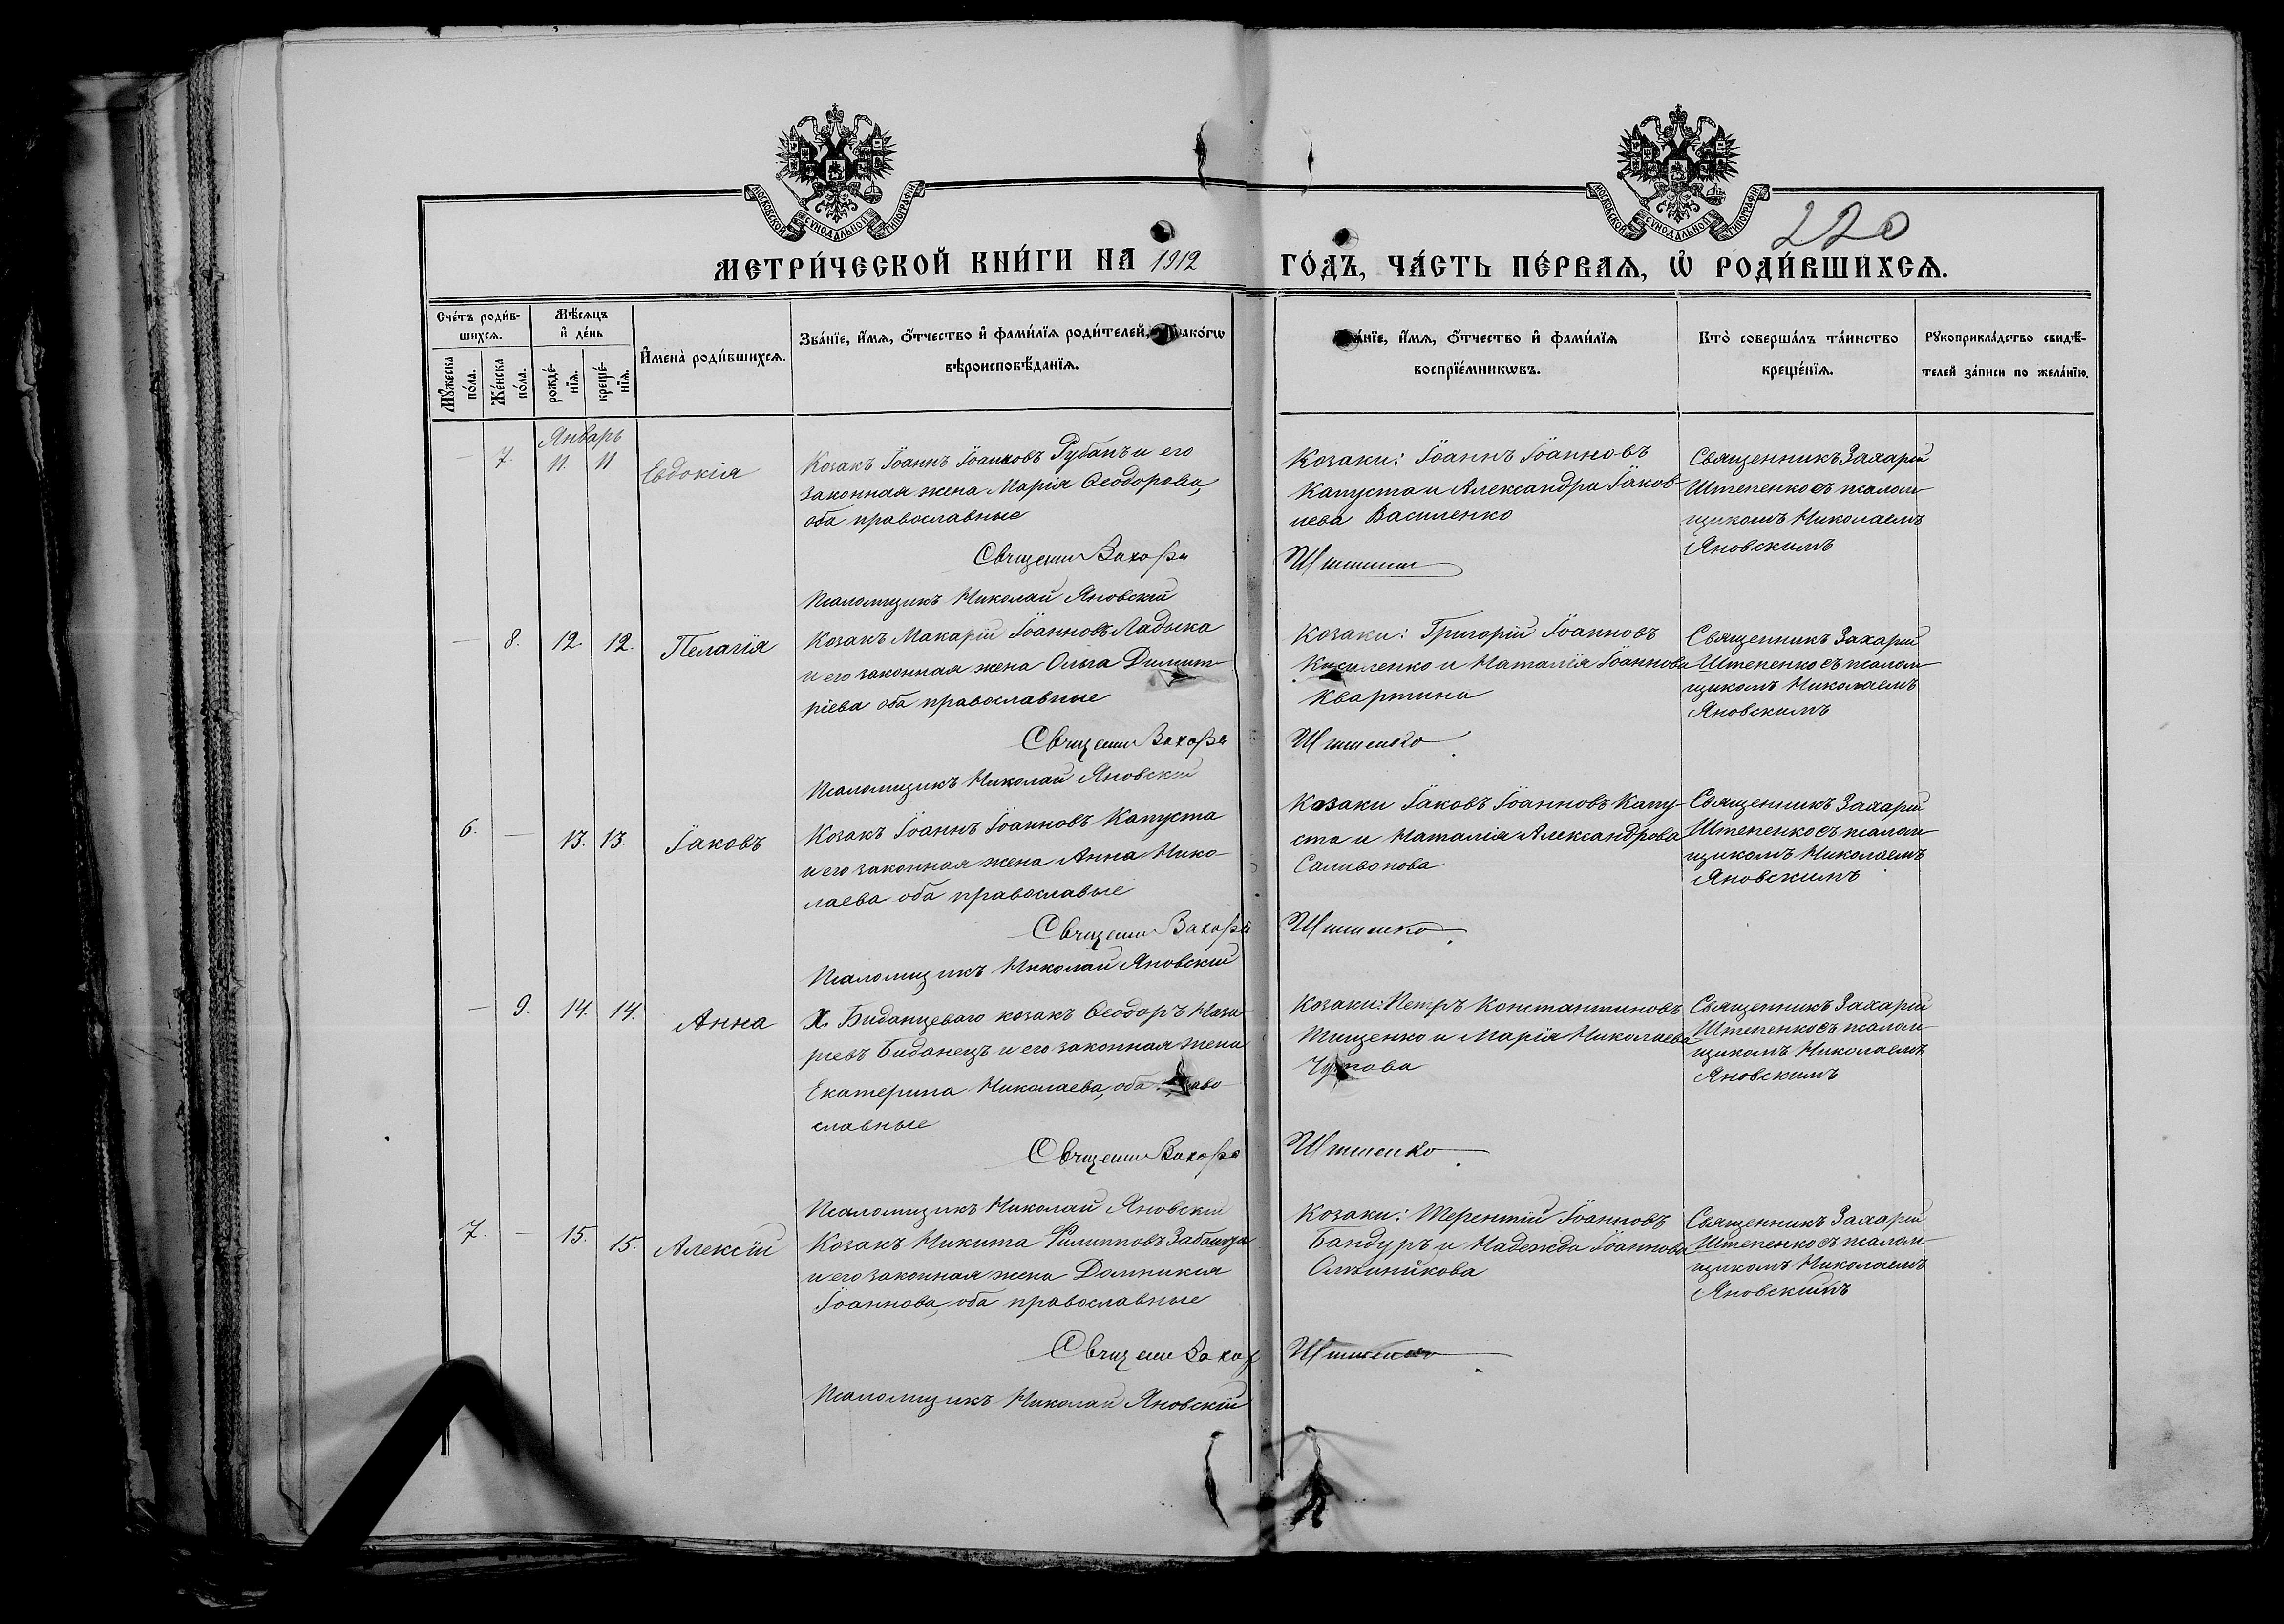 МОСКОВСКОЙ СУНОДАЛЬНОЙ ТИПОГРАФІИ
МОСКОВСКОЙ СУНОДАЛЬНОЙ ТИПОГРАФІИ
220
МЕТРИ́ЧЕСКОЙ КНИ́ГИ НА 1912 ГО́ДЪ, ЧА́СТЬ ПЕ́РВАѦ, Ѽ РОДИ́ВШИХСѦ.
Сче́тъ роди́в-
шихсѧ.
Мꙋ́жеска
по́ла.
Же́нска
по́ла.
Мѣ́сѧцъ
и҆ де́нь
рожде́-
нїѧ.
креще́-
нїѧ.
И҆мена̀ роди́вшихсѧ.
Зва́нїе, и҆́мѧ, ѻ҆́тчество и҆ фами́лїѧ роди́телей, и҆ како́гѡ
вѣроисповѣ́данїѧ.
Зва́нїе, и҆́мѧ, ѻ҆́тчество и҆ фами́лїѧ
воспрїе́мникѡвъ.
Кто̀ соверша́лъ та́инство
креще́нїѧ.
Рꙋкоприкла́дство свидѣ́-
телей за́писи по жела́нїю.
Январь
— 7. 11. 11 Евдокія
Козакъ Іоаннъ Іоанновъ Рубанъ и его
законная жена Марія Ѳеодорова,
оба православные
Священ Захарі
Псаломщикъ Николай Яновскій
Козаки: Іоаннъ Іоанновъ
Капуста и Александра Іаков-
лева Василенко
Священникъ Захарій
Штепенко съ псалом-
щикомъ Николаемъ
Яновскимъ
— 8. 12. 12. Пелагія
Козакъ Макарій Іоанновъ Ладыка
и его законная жена Ольга Димит-
ріева оба православные
Священ Захарі
Псаломщикъ Николай Яновскій
Козаки: Григорій Іоанновъ
и Наталія Іоаннова
Квартина
Штепенко
Священникъ Захарій
Штепенко съ псалом-
щикомъ Николаемъ
Яновскимъ
6. — 13. 13. Іаковъ
Козакъ Іоаннъ Іоанновъ Капуста
и его законная жена Анна Нико-
лаева оба православые
Священ Захарі
Псаломщикъ Николай Яновскій
Козаки Іаковъ Іоанновъ Капу-
ста и Наталія Александрова
Саливонова
Штепенко
Священникъ Захарій
Штепенко съ псалом-
щикомъ Николаемъ
Яновскимъ
— 9. 14. 14. Анна
Х. Биданцеваго козакъ Ѳеодоръ Наза-
рьевъ Биданецъ и его законная жена
Екатерина Николаева, оба право-
славные
Священ Захарі
Псаломщикъ Николай Яновскій
Козаки: Петръ Константиновъ
Тищенко и Марія Николаева
Штепенко
Священникъ Захарій
Штепенко съ псалом-
щикомъ Николаемъ
Яновскимъ
7. — 15. 15. Алексій
Козакъ Никита Филипповъ
и его законная жена Домникія
Іоаннова, оба православные
Священ Захар
Псаломщикъ Николай Яновскій
Козаки: Терентій Іоанновъ
Бандуръ и Надежда Іоаннова
Олейникова
Штепенко
Священникъ Захарій
Штепенко съ псалом-
щикомъ Николаемъ
Яновскимъ